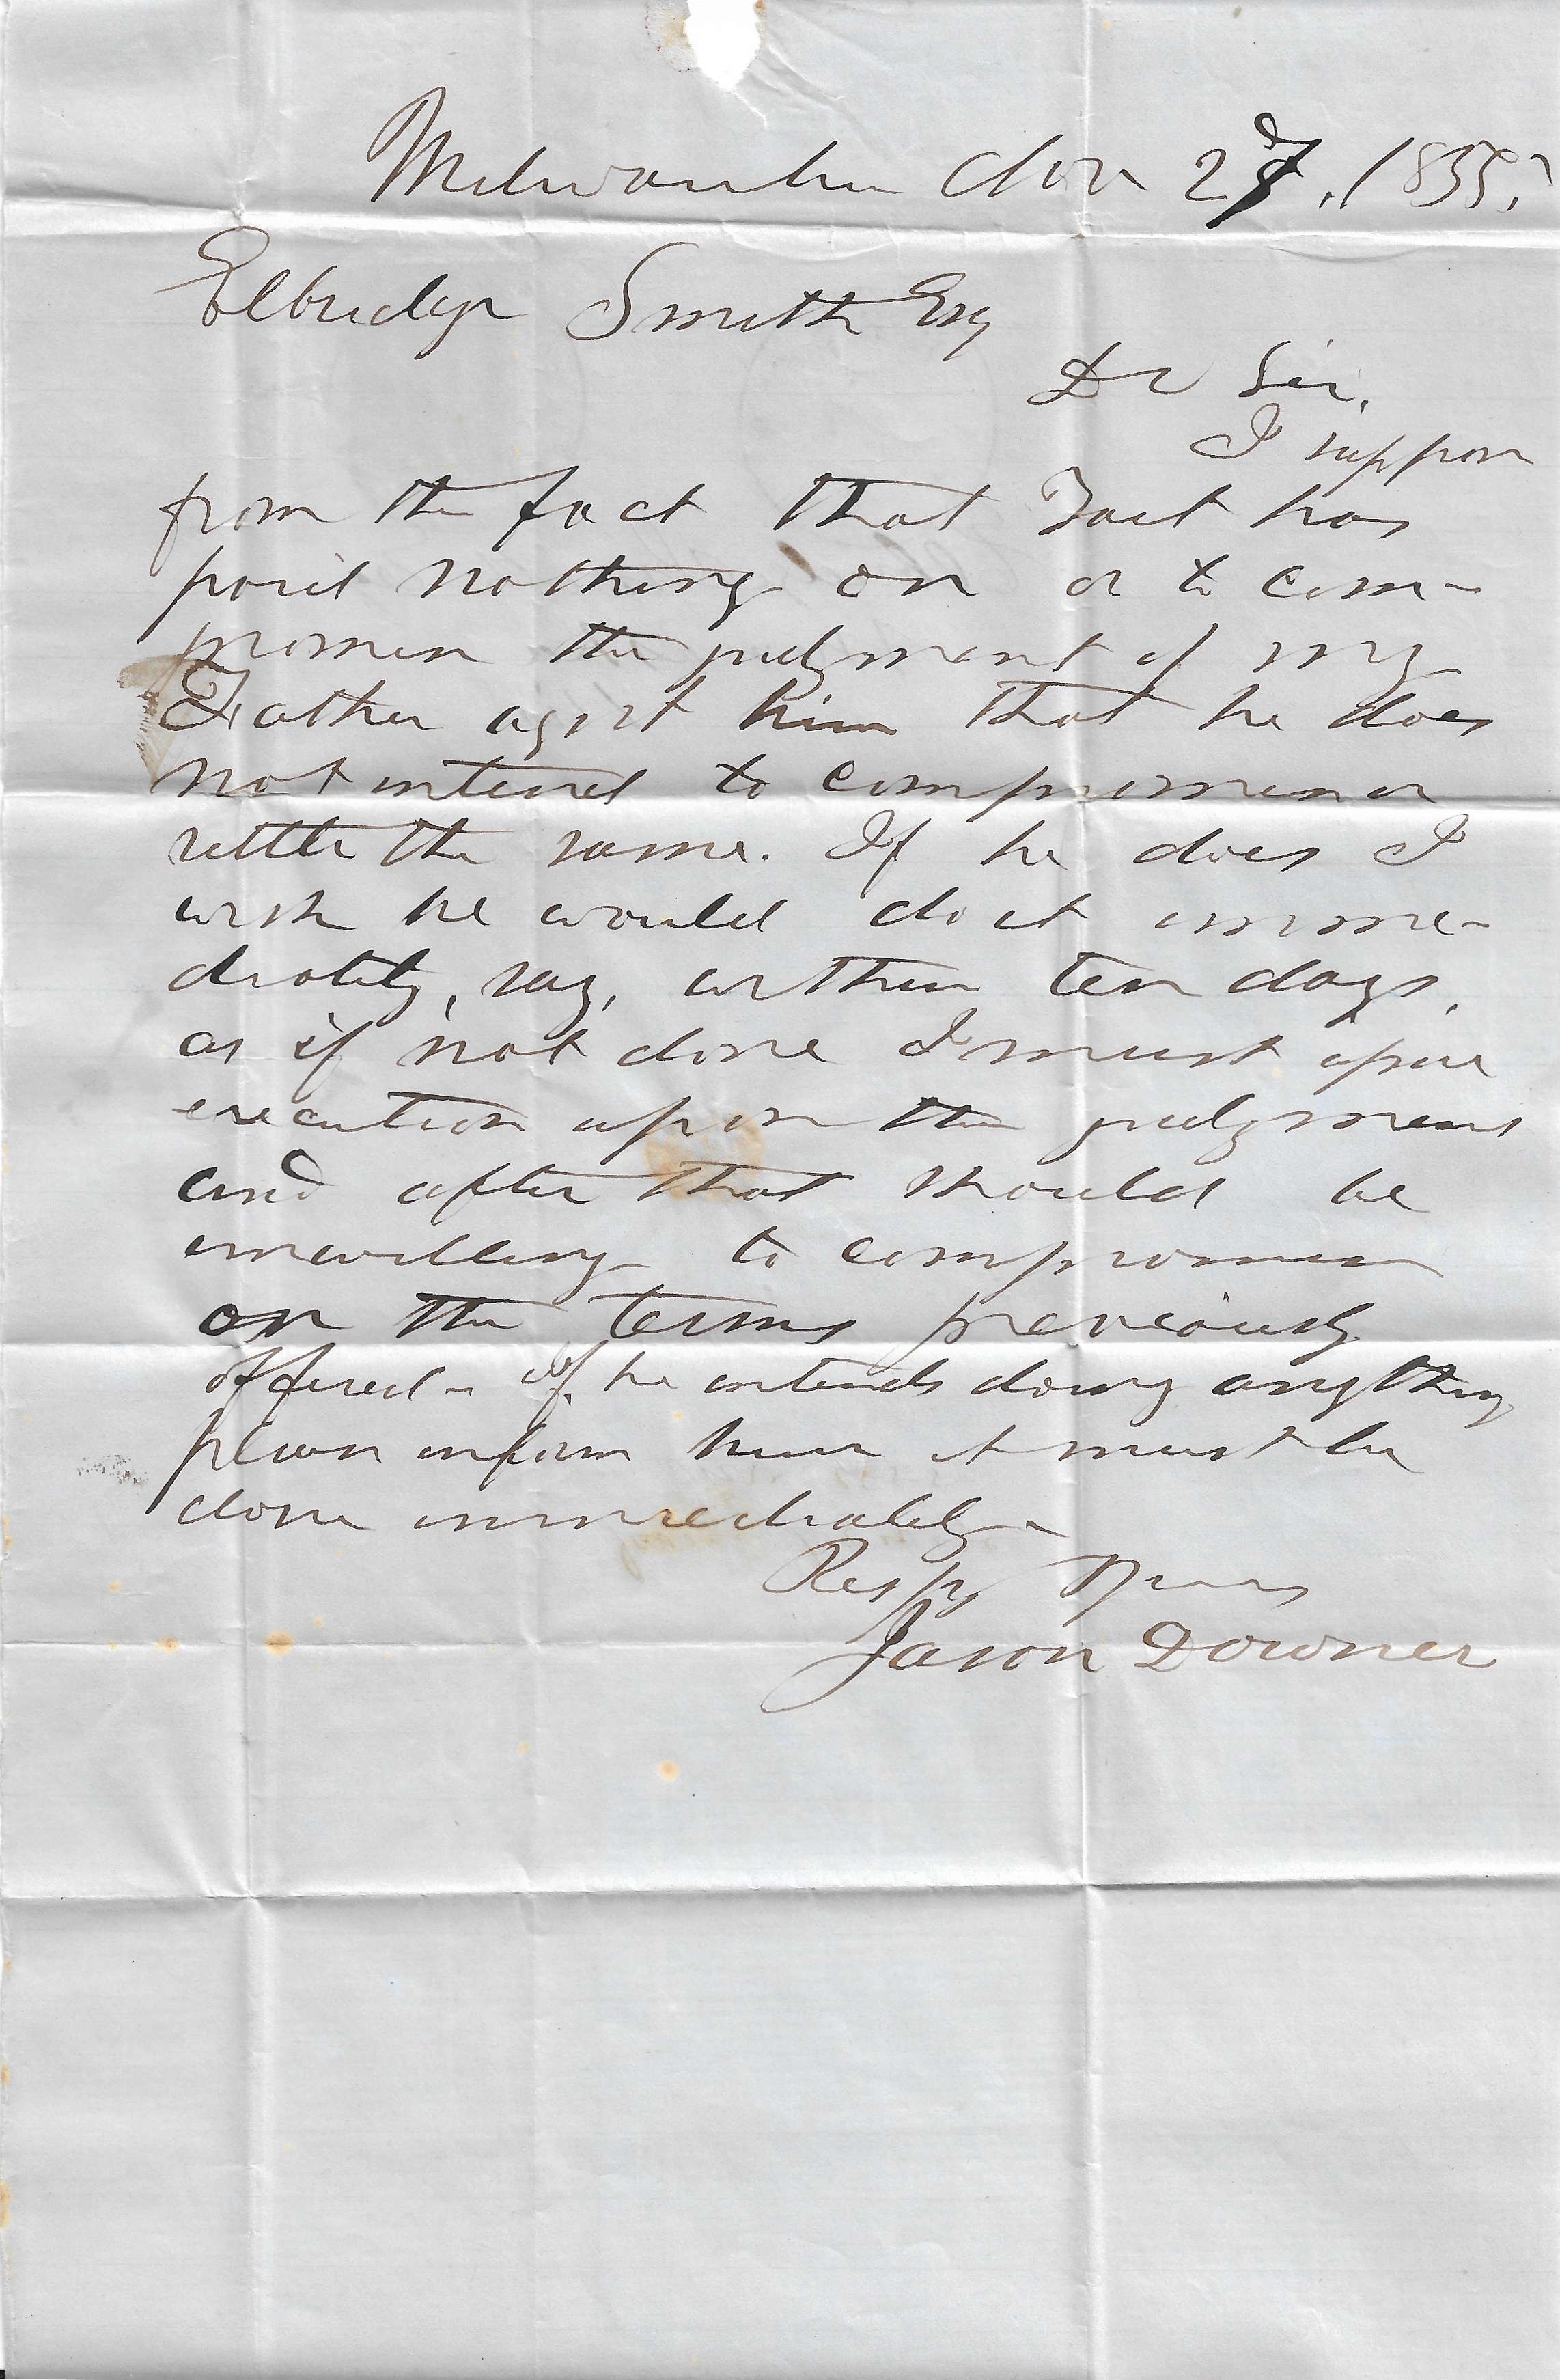 Milwaukee Nov 27, 1855.
Elbridge Smith Esq
Dr Sir,
I suppose
from the fact that has
paid nothing on or to com-
promise the judgment of my
Father agst him that he does
not intend to compromise or
settle the same. If he does I
wish he would do it imme-
diately, say, within ten days,
as if not done I must issue
execution upon the judgment
and after that should be
unwilling to compromise
on the terms previously
offered - If he intends doing anything
please inform him it must be
done immediately -
Respy Yours
Jason Downer